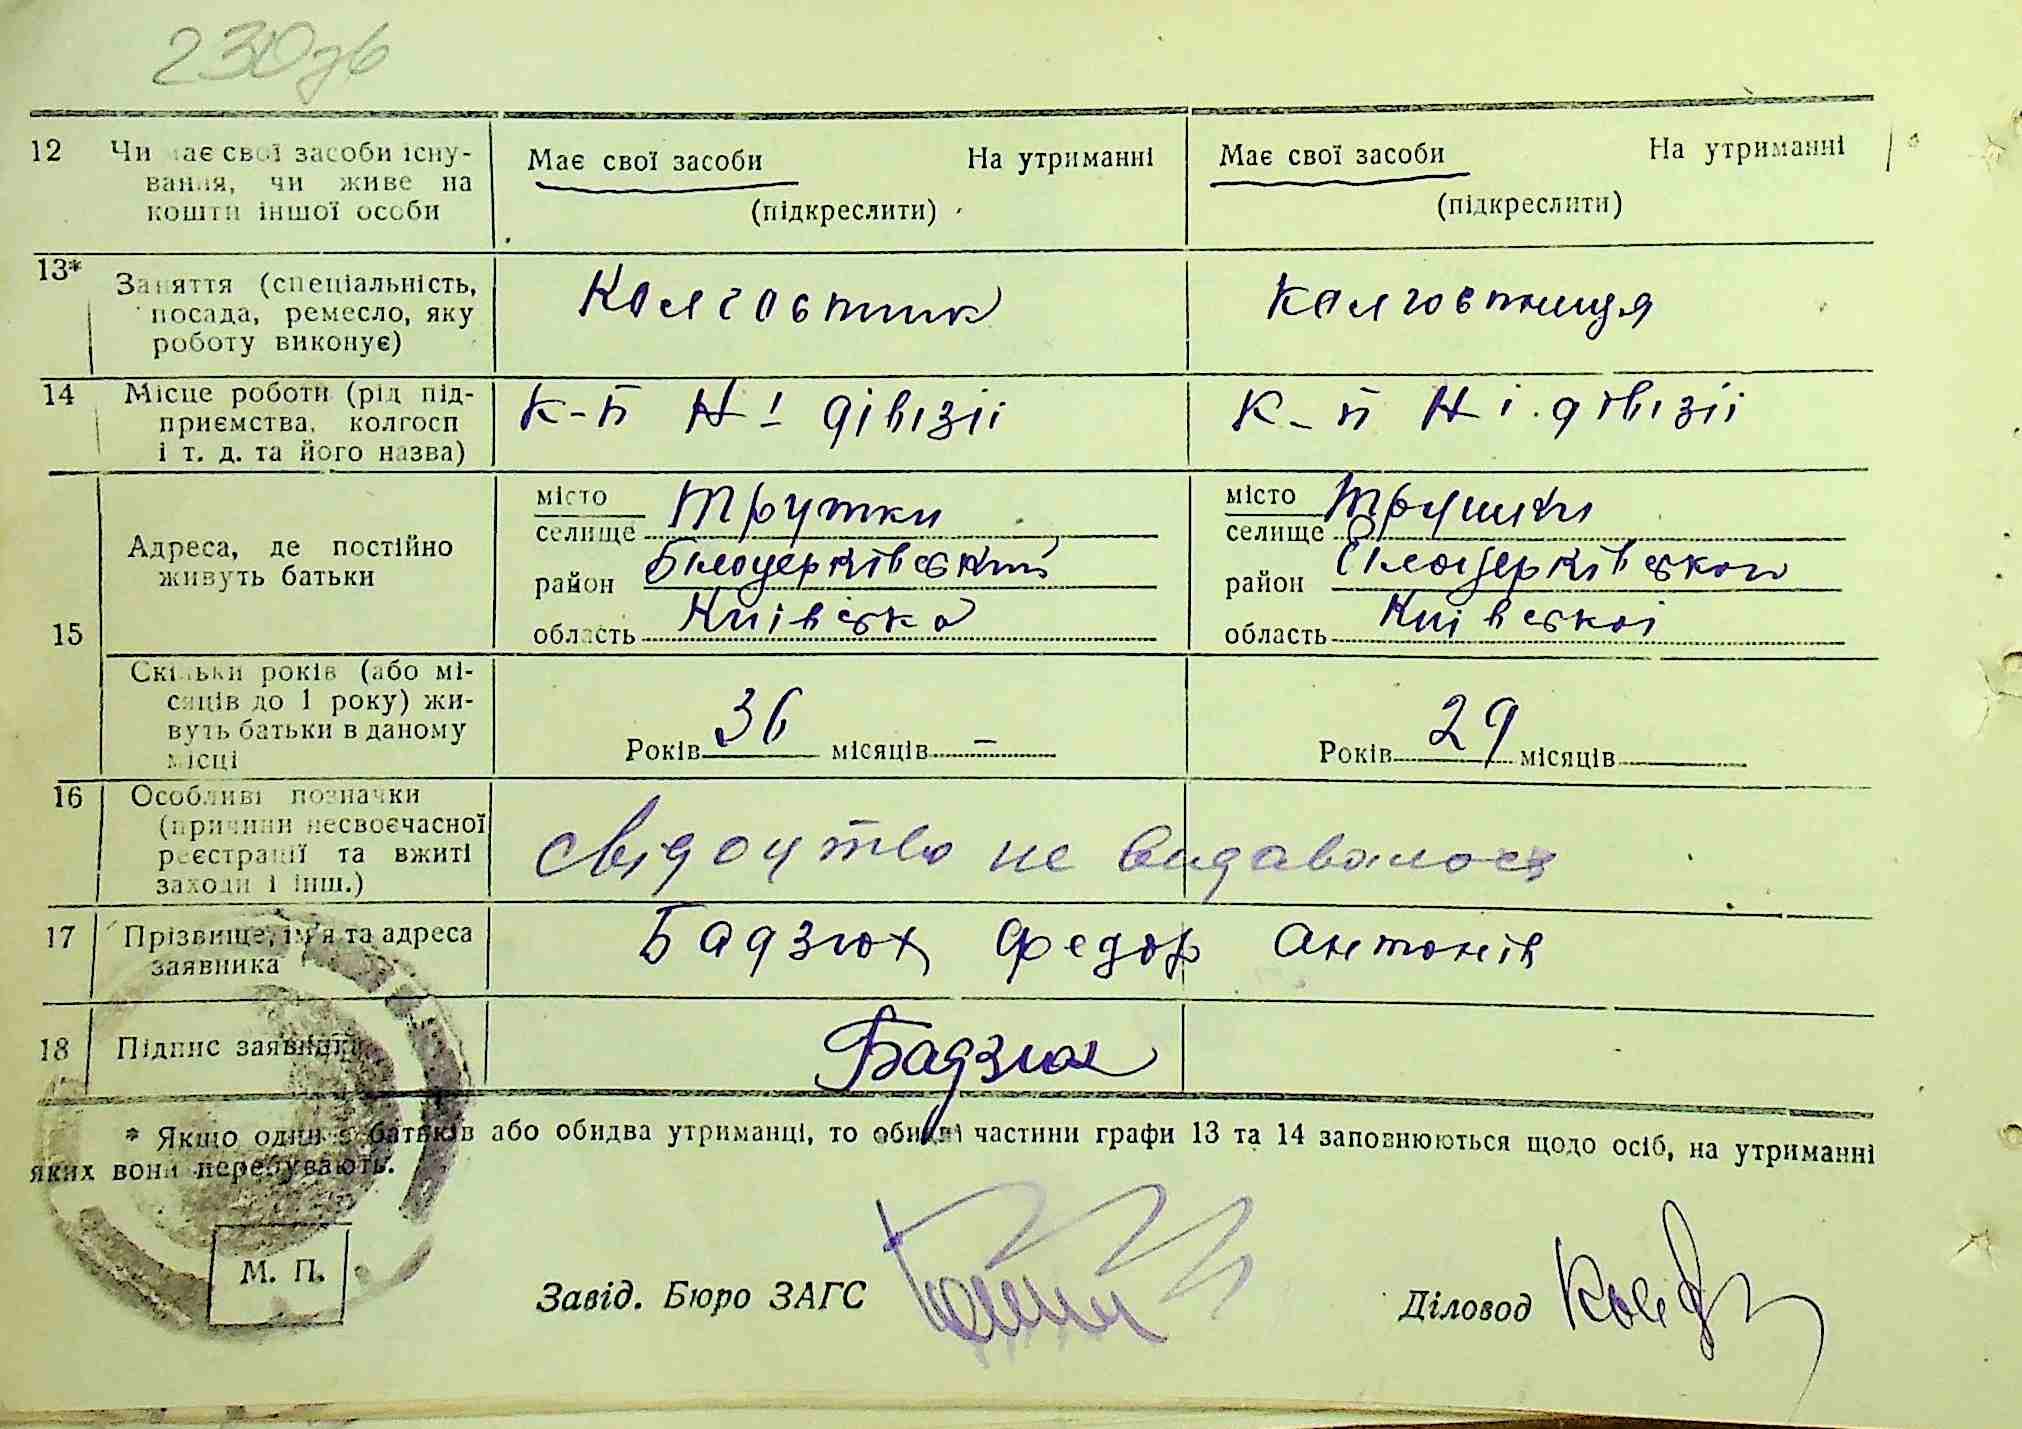 230зв
12 Чи має свої засоби існу-
вання, чи живе на
кошти іншої особи
Має свої засоби На утриманні
(підкреслити)
Має свої засоби На утриманні
(підкреслити)
13* Заняття (спеціальність,
посада, ремесло, яку
роботу виконує)
Колгоспник
Колгоспниця
14 Місце роботи (рід під-
приємства, колгосп
і т. д. та його назва)
К-п Н І дівізіі
К-п Н і. дівізіі
15
Адреса, де постійно
живуть батьки
місто
селище Трушки
район Білоцерківський
область Київська
місто
селище Трушки
район Білоцерківського
область Київськоі
Скільки років (або мі-
сяців до 1 року) жи-
вуть батьки в даному
місці
Років 36 місяців –
Років 29 місяців
16 Особливі позначки
(причини несвоєчасної
реєстрації та вжиті
заходи і інш.)
свідоцтво не видавалося
17 Прізвище, ім'я та адреса
заявника
Бадзюх Федор Антонів
18 Підпис заявника
Бадзюх
* Якщо один з батьків або обидва утриманці, то обидві частини графи 13 та 14 заповнюються щодо осіб, на утриманні
яких вони перебувають.
М. П.
Завід. Бюро ЗАГС
Діловод